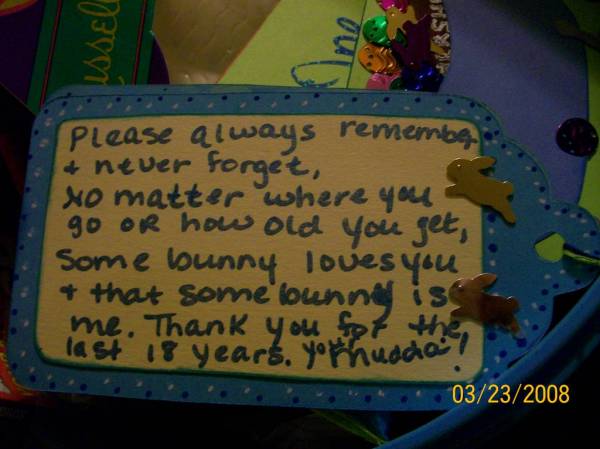 ussell
you
Please always remember
+ never forget,
No matter where you
go or how old you get,
Some bunny loves you
+ that some bunny is
me. Thank you for the
last 18 years. Yo mudda!
03/23/2008